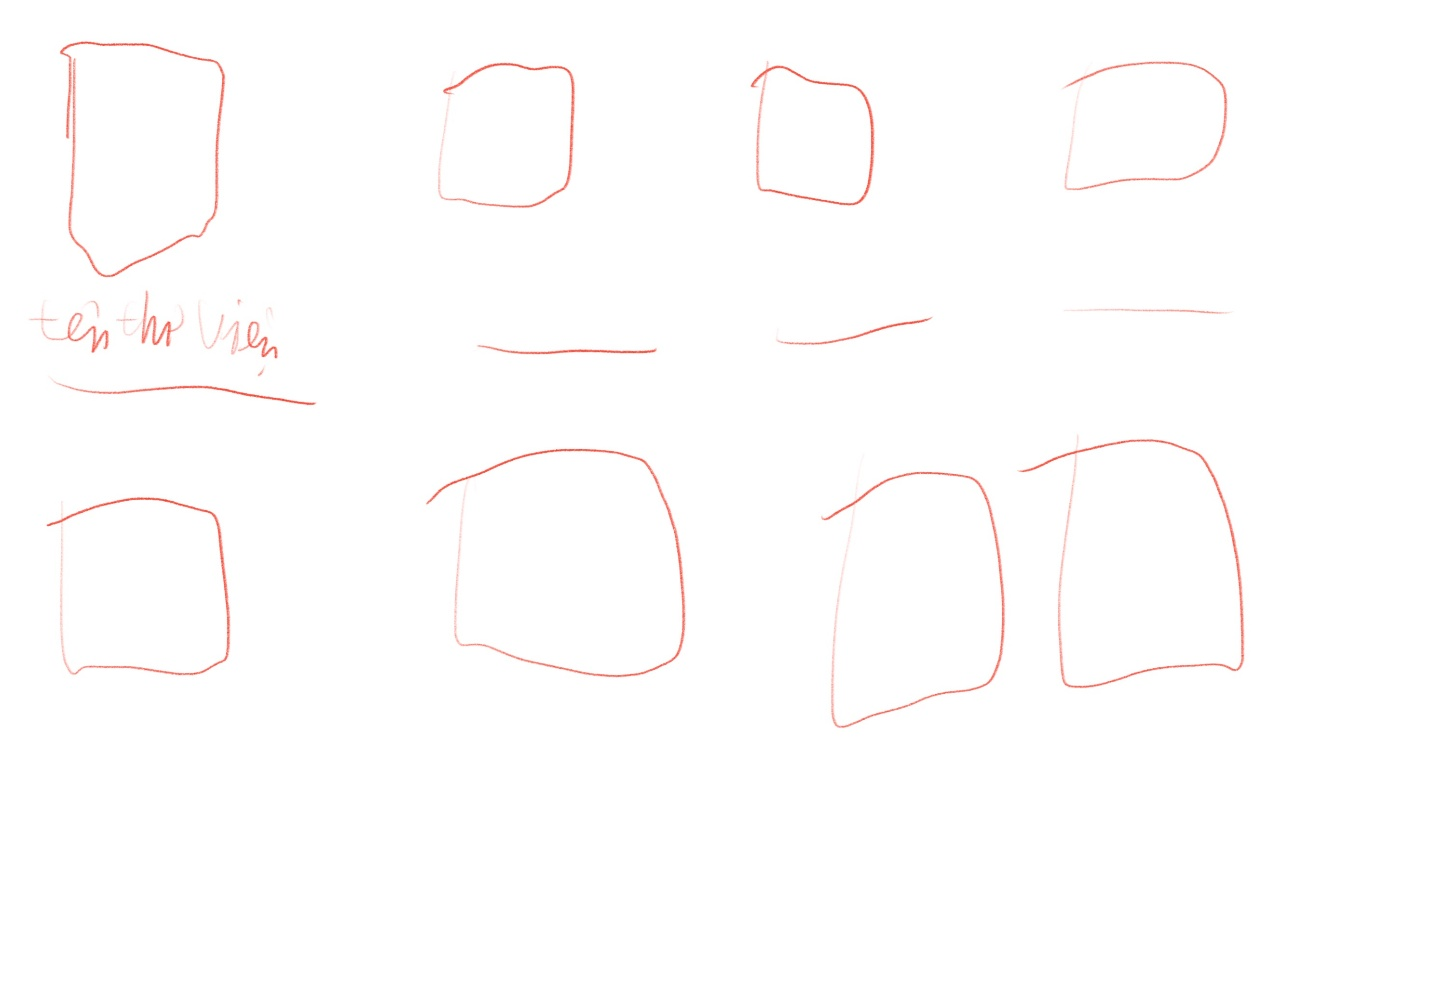 tên thư viện